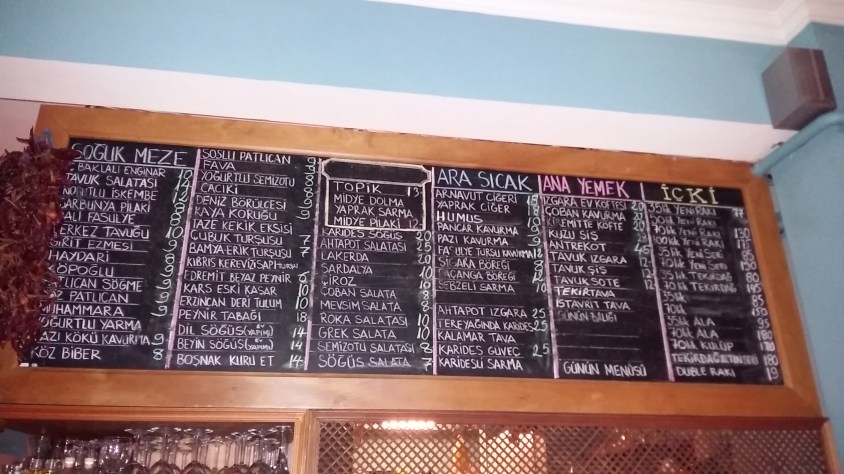 SOĞUK MEZE
BAKLALI ENGİNAR
TAVUK SALATASI
İŞKEMBE
BARBUNYA PİLAKİ
FASULYE
ÇERKEZ TAVUĞU 10
GİRİT EZMESİ 9
HAYDARİ 8
KÖPOĞLU 9
PATLICAN SÖĞME 9
KÖZ PATLICAN 9
MUHAMMARA 9
YOĞURTLU YARMA
KAZI KÖKÜ KAVURMA 9
KÖZ BİBER 8
SOSLU PATLICAN 9
FAVA
YOĞURTLU SEMİZOTU
CACIKI
DENİZ BÖRÜLCESİ
KAYA KORUĞU
TAZE KEKİK EKSİSİ
ÇUBUK TURŞUSU 7
BAMYA ERİK TURŞUSU 7
KIBRIS KEREVİŞAPI TURŞU
EDREMİT BEYAZ PEYNİR 8
KARS ESKİ KAŞAR 10
ERZİNCAN DERİ TULUM 10
PEYNİR TABAĞI 18
DİL SÖĞÜŞ 14
BEYİN SÖĞÜŞ 14
BOŞNAK KURU ET 14
TOPİK 13
MİDYE DOLMA
YAPRAK SARMA
MİDYE PİLAKİ 12
KARİDES SÖĞÜŞ 20
AHTAPOT SALATASI 25
LAKERDA 20
SARDALYA 10
ÇİROZ 10
ÇOBAN SALATA 8
MEVSİM SALATA 8
ROKA SALATASI 10
GREK SALATA 10
SEMİZOTU SALATASI 8
SÖĞÜŞ SALATA 7
ARA SICAK
ARNAVUT CİĞERİ 15
YAPRAK CİĞER 18
HUMUS 9
PANCAR KAVURMA 9
PAZI KAVURMA 9
FASULYE TURŞU KAVURMA 12
SİGARA BÖREĞİ 8
PAÇANGA BÖREĞİ
SEBZELİ SARMA
AHTAPOT IZGARA 25
TEREYAĞINDA KARİDES 25
KALAMAR TAVA
KARİDES GÜVEÇ 25
KARİDESLİ SARMA
ANA YEMEK
IZGARA EV KÖFTESİ 20
ÇOBAN KAVURMA
KİREMİTTE KÖFTE 20
KUZU ŞİŞ
ANTREKOT 45
TAVUK IZGARA
TAVUK ŞİŞ 12
TAVUK SOTE 12
TEKİR TAVA
İSTAVRİT TAVA
GÜNÜN BALIĞI
GÜNÜN MENÜSÜ
İÇKİ
35lik YENİ RAKI 77
YENİ RAKI
70lik YENİ RAKI 130
100lük YENİ RAKI
35lik YENİ SERİ
YENİ SERİ
35lik TEKİRDAĞ 80
70lik TEKİRDAĞ 145
35lik 85
70lik 150
35lik ALA 95
70lik ALA
70lik KULÜP
TEKİRDAĞ 180
DUBLE RAKI 19